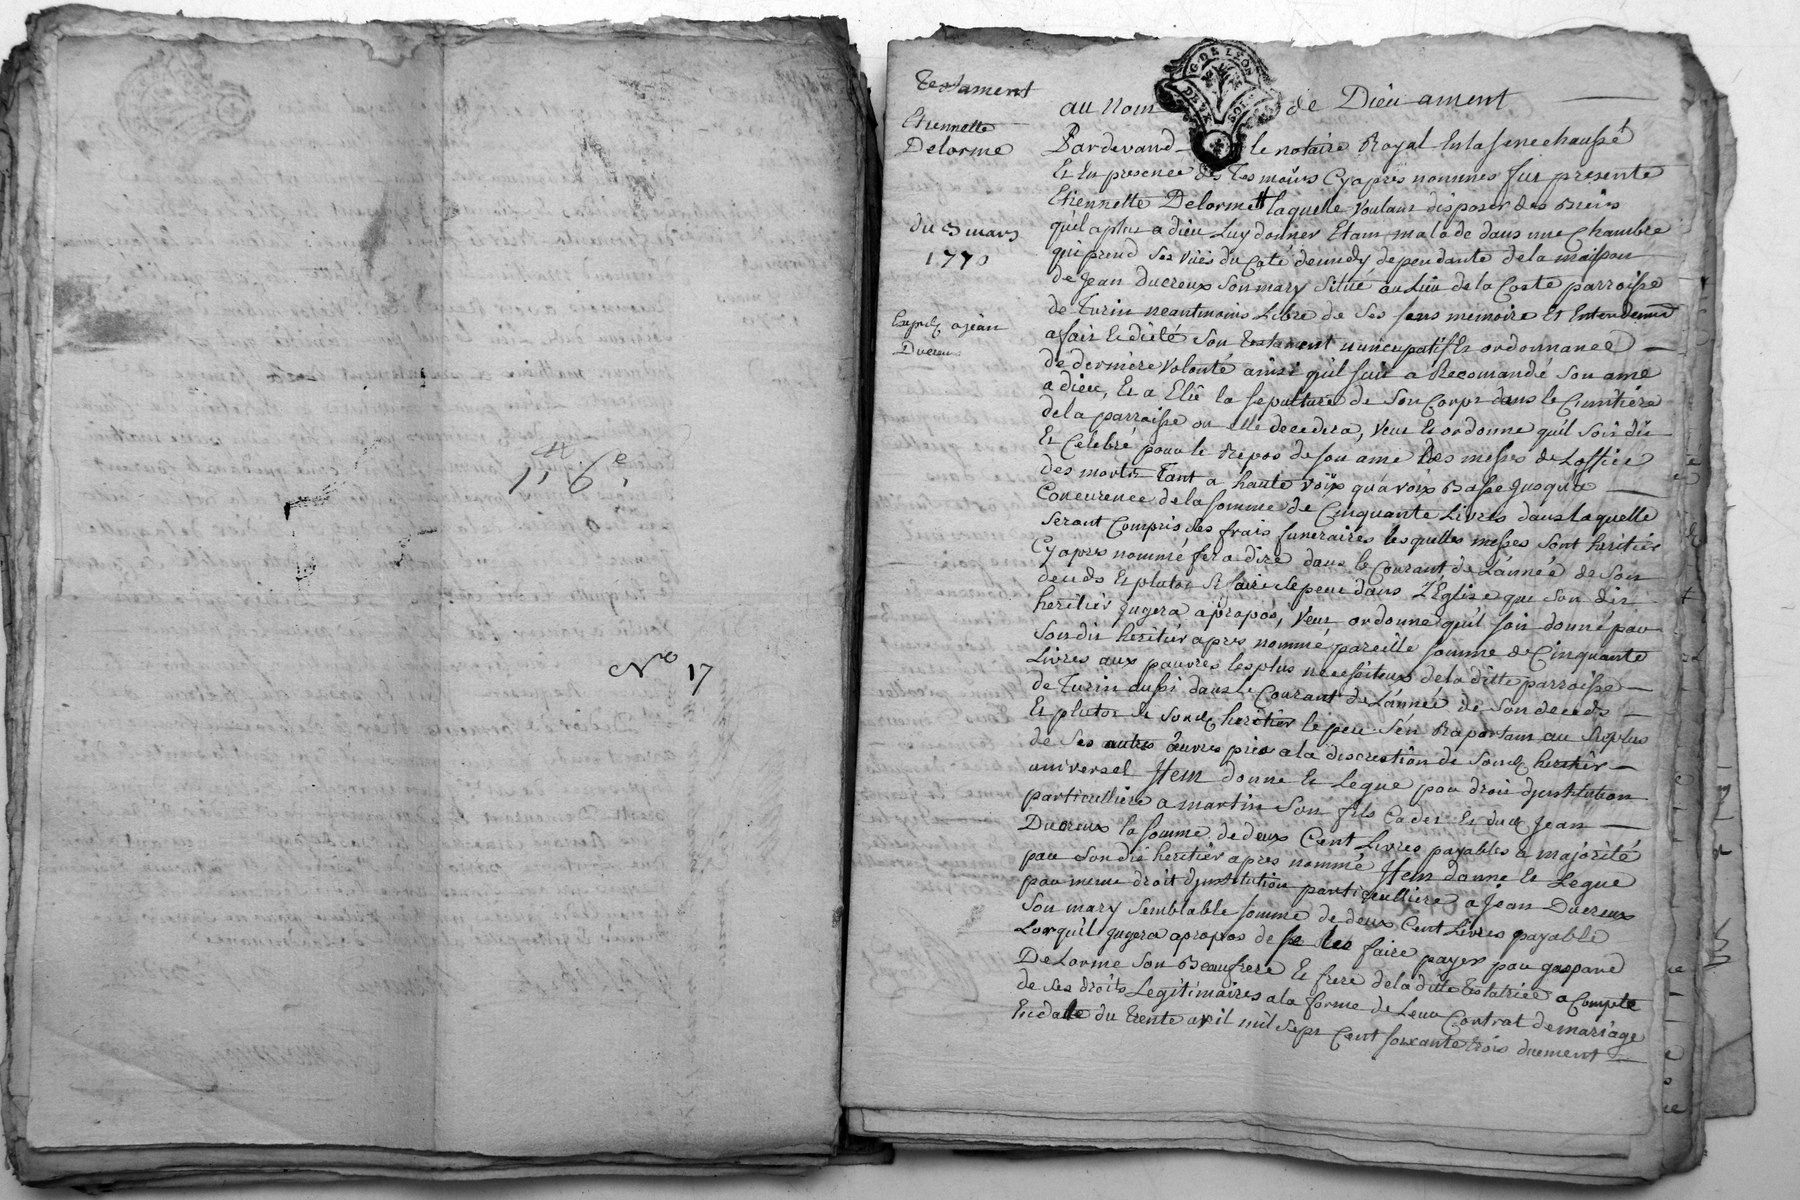 1ᴴ 6ˢ
N° 17
Testament
Etiennette
Delorme
du 3 mars
1770
Expedié a jean
Ducreux
G. DE LYON
DEUX SOLS
au nom de Dieu ament
Pardevand le notaire Royal En la senechaussé
Et En presence des Tesmoins Cyapres nommes fut presente
Etiennette Delorme laquelle voulant disposer des Biens
qu'il a plut a dieu Luy donner Etant malade dans une Chambre
qui prend ses vües du Coté de midy dependante de la maison
de Jean Ducreux son mary situé au Lieu de la Coste parroisse
de Turin neantmoins Libre de ses sens memoire Et Entendement
a fair Et dicté son testament nuncupatif Et ordonnance
de dernière volonté ainsi qu'il suit a Recomandé son ame
a dieu, Et a Elû la sepulture de son Corps dans le Cimitière
de la parroisse ou elle decedera, veut Et ordonne qu'il soit dit
Et Celebré pour le repos de son ame des messes de L'office
des morts Tant a haute voix qu'a voix Basse jusqu'a
Concurence de la somme de Cinquante Livres dans laquelle
seront Compris les frais funeraires lesquelles messes sont heritier
Cyapres nommé fera dire dans le Courant de L'année de son
decds Et plutot si faire se peut dans L'Eglise que son dit
heritiér jugera apropos, veut ordonne qu'il soit donné par
son dit heritiér apres nommé pareille somme de Cinquante
Livres aux pauvres les plus necessiteux de la ditte parroisse
de Turin aussi dans le Courant de L'année de son decds
Et plutot si son d. heritier le peu s'en Raportant au surplus
de ses autres œuvres pies a la discrestion de son d. heritiér
universel Item donne Et Legue par droit d'institution
particulliere a martin son fils Cadet Et dud. Jean
Ducreux la somme de deux Cent Livres payables a majorité
par son dit heritiér apres nommé Item donne Et Legue
par meme droit d'institution particulliere a Jean Ducreux
son mary semblable somme de deux Cent Livres payable
Lorqu'il jugera apropos de se les faire payer par gaspard
DeLorme son Beaufrere Et frere de la ditte testatrice a Compte
de ses droits Legitimaires a la forme de Leur Contrat de mariage
En date du trente avril mil sept Cent soixante trois duement